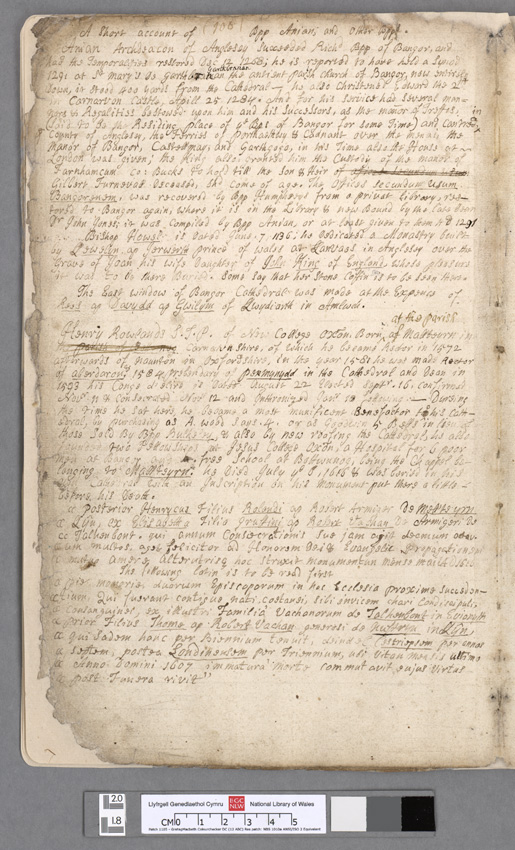 A Short account of (106) Bpp Anian, and other Bpps.
Anian Archdeacon of Anglesey Succeeded Rich.d Bpp of Bangor, and
had the Temporalities restored Dec. 12 1268; he is reported to have held a Synod
Garthbranan
1291 at St. mary's de Garth than the antient parish church of Bangor, now entirely
down, it stood 400 yards from the Cathedral — he also Christened Edward the 2d
in Carnarvon Castle, April 25 1284. And for his Service had Several man-
nors & Royalities bestowed upon him and his Successors, as the manor of Treffos, in
(Said to be the Residing place of ye Bps of Bangor for some Time) and
County of Anglesey, the Ferries of Porthaethwy & Cadnant over the menai, the
manor of Bangor, Castellmay, and Garthgogo, in his Time also the House at
London was given; the King also granted him the Custody of the manor of
Farnhamcam co: Bucks to hold till the Son & Heir of
Gilbert Turnevad Deceased, shd come of age. The Offices secundum Usum
Bangoriensem, was recovered by Bpp Humphreys from a privat library, res-
tored to Bangor again, where it is in the Library & new Bound by the late Dean
Dr John Jones; it was Compiled by Bpp Anian, or at least given to them Ad 1291
Bishop Howel dedicated a monastry built
by Lewellin ap Iorwerth prince of wales at Lanvaes in Anglesey over the
Grave of Joan his wife Daughter of John King of England whose pleasure
it was to be there Buried. Some say that her Stone Coffin is to be seen there.
The East window of Bangor Cathedral was made at the Expence of
Rees ap Davydd ap Gwilym of Lloydiarth in Amlwch.
at the parish
Henry Rowlands S.T.P. of New College Oxon Born, of Mellteyrn in
Carnarvonshire, of which he became Rector in 1572
afterwards of Launton in Oxfordshire, in the year 1581 he was made Rector
of aberdaron 1584 prebendary of penmynydd in the Cathedral and Dean in
1593 his Conge d'elire is dated August 22 Elected Septr. 16. Confirmed
Nov. 11 & Consecrated Nov 12 and Inthronized Jany 18 — During
the time he Sat here, he became a most munificent Benefactor to his Cath-
edral, by purchasing as A. wood says 4. or as Godwin 5 Bells in lieu of
those Sold by Bpp Bulkeley, & also by new roofing the Cathedral, he also
two Fellowships at Jesus College Oxon, a Hospital for 6 poor
men at Bangor, a free School at Bottwnnog, being the Chappel be-
longing to Mallteyrn. he died July 1616 & was Buried in his
Cathedral with an Inscription on his monument put there a little
before his Death.
" posterior Henricus Filius Rolandi ap Robert Armiger De Mellteyrn
" Llyn, ex Elisabetha Filia Griffini ap Robert Vachan De
" Talhenbont, qui annum Consecrationis suæ jam agit
multos, agat feliciter ad Honorem Dei & Evangelii propagationem
The other latin is to be read first
" piæ memoriæ duorum Episcoporum in hac Ecclesia proxime Succeden-
" tium. Qui fuerunt contigue nati, coetanei sibi invicem chari Condiscipuli,
" Consanguinei, ex illustri Familia Vachanorum de Talhenbont in Evioneth
" prior Filius Thomæ ap Robert Vachan generosi de Nyffryn in Llyn,
" qui Sedem hanc per Biennium tenuit, deinde Petriopsem per annos
" Septem, postea Londinensem per Triennium, ubi Vitam mensis ultimo
" anno Domini 1607 immatura morte commutavit cujus Virtus
" post Funera vivit"
Llyfrgell Genedlaethol Cymru
National Library of Wales
CM 0 1 2 3 4 5
2.0
1.8